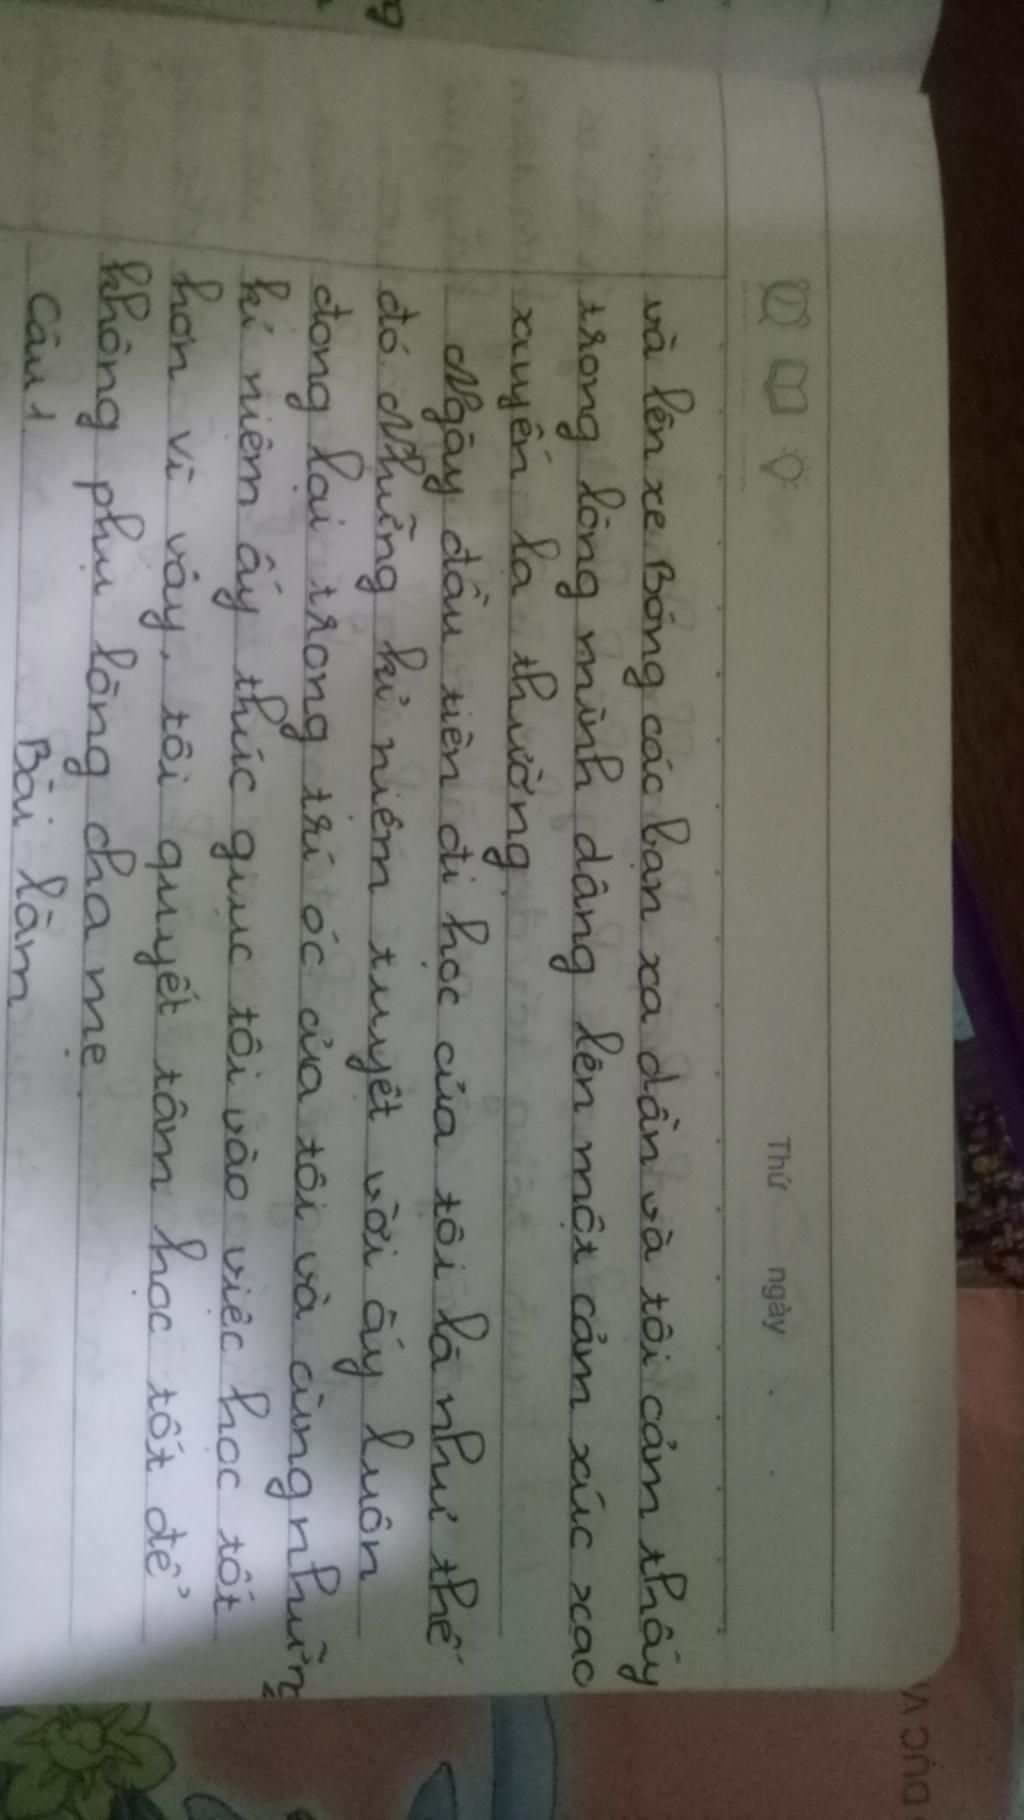 Thứ ngày
và lên xe Bóng các bạn xa dần và tôi cảm thấy
trong lòng mình dâng lên một cảm xúc xao
xuyến lạ thường.
Ngày đầu tiên đi học của tôi là như thế
đó. Những kỉ niệm tuyệt vời ấy luôn
đọng lại trong trí óc của tôi và cùng những
kỉ niệm ấy thúc giục tôi vào việc học tốt
hơn vì vậy, tôi quyết tâm học tốt để
không phụ lòng cha mẹ.
Câu 1 Bài làm